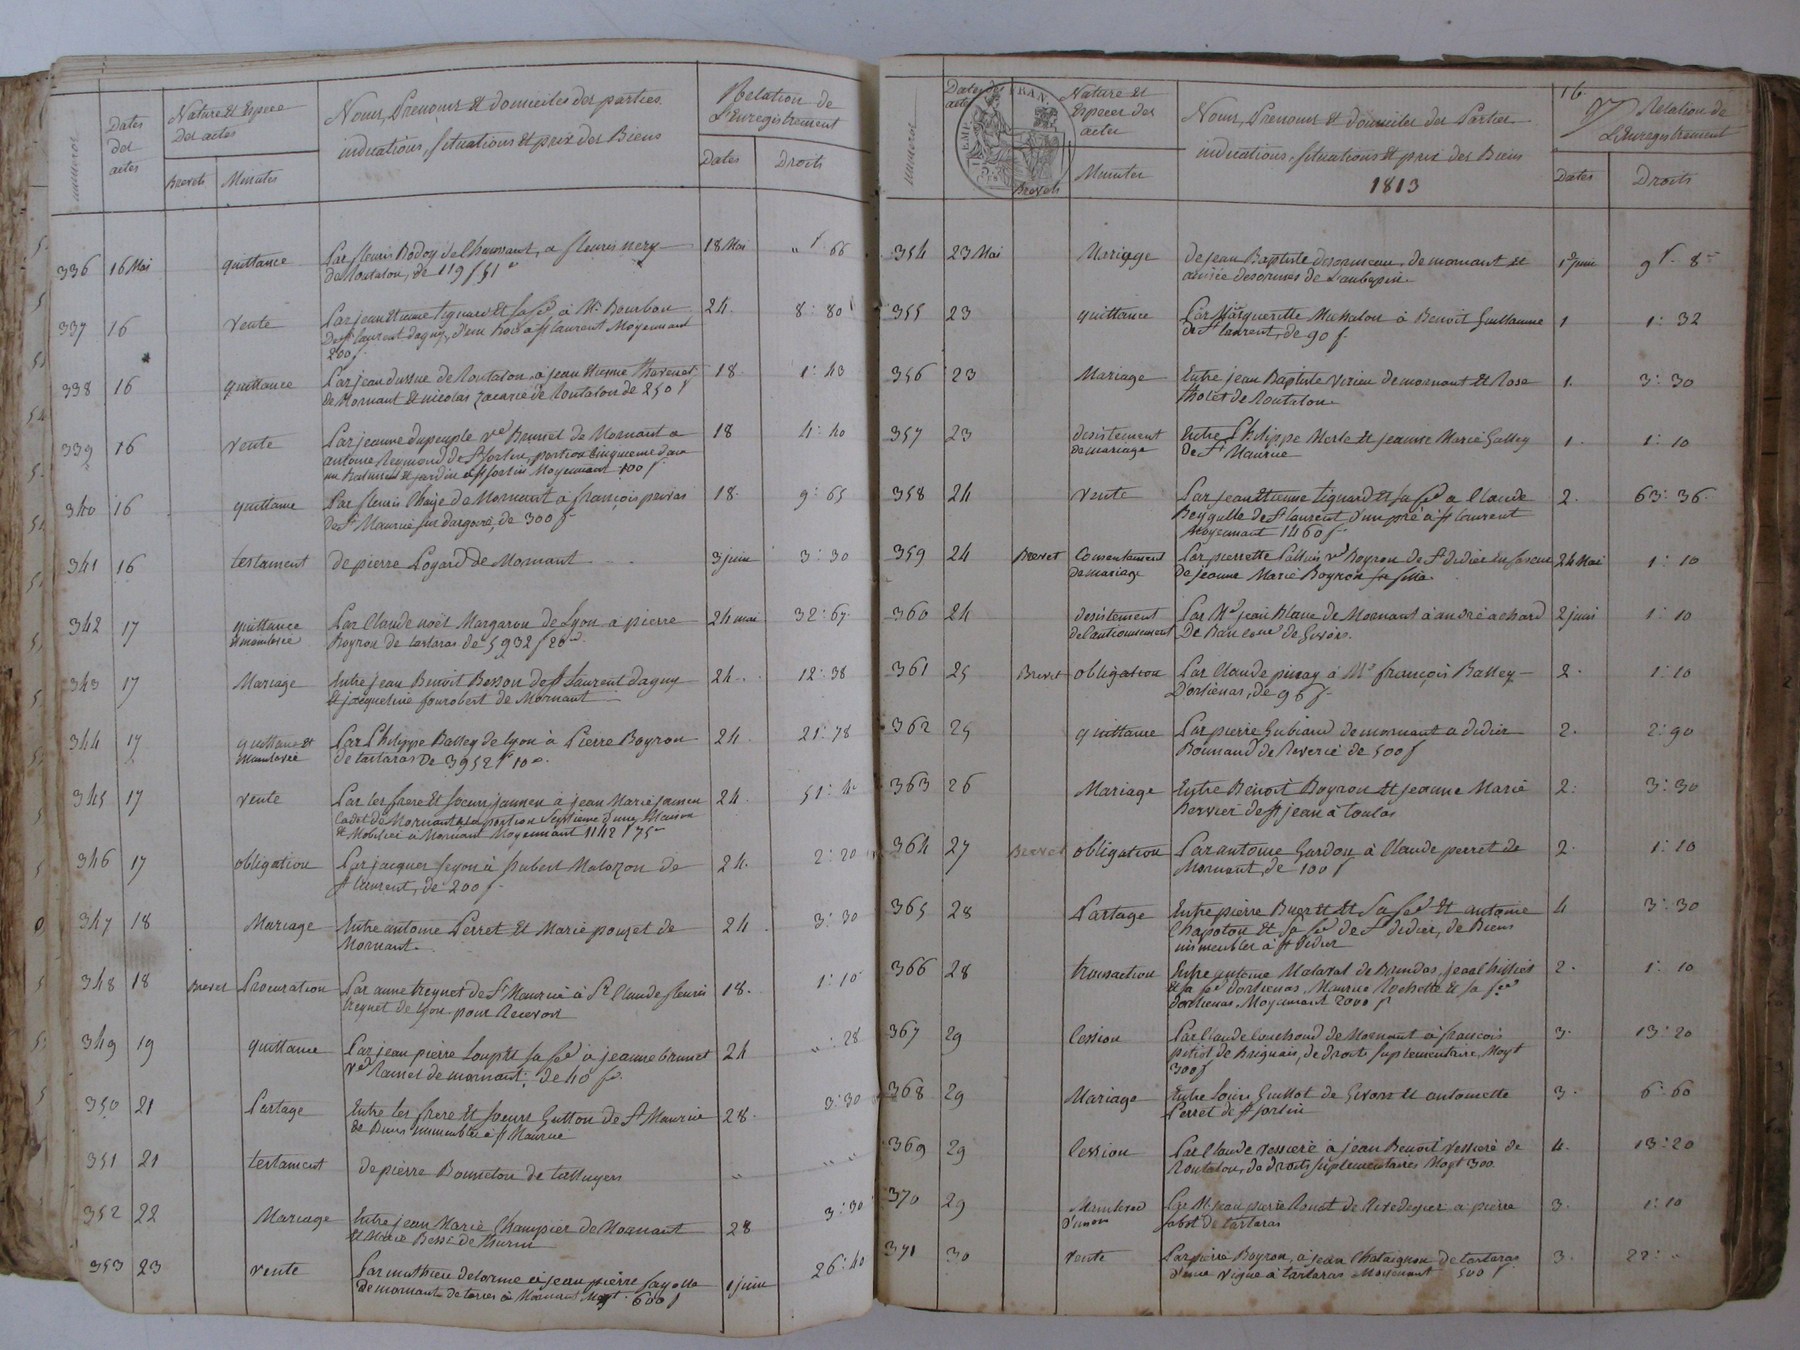 numeros
Dates
des
actes
Nature et Espèce
des actes
Brevets Minutes
Noms, Prenoms et domiciles des parties
indications, situations et prix des Biens
Relation de
L'Enregistrement
Dates Droits
336 16 Mai quittance Par fleuris Bodoy de Chaussant, a fleuris nery 18 Mai " f 66
de Rontalon, de 119 f 51 c
337 16 vente Par jean Etienne Tignard et sa fe à Mr Bourbon 24. 8: 80
De st laurent dagny, d'un Bois a st laurent Moyennant
200 f
338 16 quittance Par jean dussue de Rontalon, a jean Etienne thevenet 18. 1: 43
de Mornant et nicolas zacarie de Rontalon de 250 f
339 16 vente Par jeanne dupeuple ve Brunet de Mornant a 18 4: 40
antoine Reymond de St Sorlin, portion cinquieme dans
un Batiment et jardin a st sorlin Moyennant 100 f
340 16 quittance Par fleuris Chaize de Mornant a françois 18. 9: 65
de St Maurice sur dargoire, de 300 f
341 16 testament de pierre Logard de Mornant 3 juin 3: 30
342 17 quittance Par Claude noël Margaron de Lyon a pierre 24 mai 32: 67
et mainlevée Boyron de tartaras de 5932 f 20 c
343 17 Mariage Entre jean Benoit Besson de st Laurent dagny 24.. 12: 38
et jacqueline fourobert de Mornant
344 17 quittance et Par Philippe Balley de Lyon à Pierre Boyron 24. 21: 78
mainlevée de tartaras De 3952 f 10 c.
345 17 vente Par les frere et soeurs jaumen à jean Marie jaumen 24. 51: 4
Cadet de Mornant de la portion Septieme d'une Maison
et Mobilier à Mornant Moyennant 1142 f 75 c
346 17 obligation Par jacques à hubert de 24. 2: 20
st laurent, de 200 f.
347 18 Mariage Entre antoine Perret et Marie pouzet de 24. 3: 30
Mornant.
348 18 Brevet Procuration Par anne treynet de St Maurice à Sr Claude fleuris 18. 1: 10
treynet de Lyon pour Recevoir
349 19 quittance Par jean pierre Loup et sa fe à jeanne brunet 24 ": 28
ve de mornant, de 40 f.
350 21 Partage Entre les frere et soeurs Gutton de St Maurice 28. 3: 30
de Biens immeubles à st Maurice
351 21 testament de pierre Bonneton de taluyers " " "
352 22 Mariage Entre jean Marie Champier de Mornant 28 3: 30
et Marie Besse de thurin
353 23 vente Par mathieu delorme à jean pierre fayolle 1 juin 26: 40
de mornant de terres à Mornant Moyt 600 f
numeros
Dates des
actes
Nature et
Especes des
actes
Brevets Minutes
Noms, Prenoms et domiciles des Parties
indications, situations et prix des Biens
1813
16.
97
Relation de
L'Enregistrement
Dates Droits
EMP. FRAN.
354 23 Mai Mariage de jean Baptiste de mornant et 1er juin 9 f. 8 c
de Laubepin
355 23 quittance Par Margueritte à Benoit Guillaume 1 1: 32
de St laurent, de 90 f.
356 23 Mariage Entre jean Baptiste Verieu de mornant et Rose 1. 3: 30
tholet de Rontalon
357 23 desistement Entre Philippe Merle et jeanne Marie Galley 1. 1: 10
de mariage de St Maurice
358 24 vente Par jean Etienne Tignard et sa fe a Claude 2. 63: 36.
de st laurent d'un pré à st laurent
Moyennant 1460 f
359 24 Brevet Consentement Par pierrette ve Boyron de St didier 24 Mai 1: 10
de mariage De jeanne Marie Boyron sa fille
360 24 desistement Par Mr jean Blanc de Mornant à andré achard 2 juin 1: 10
de Cautionnement de Givors.
361 25 Brevet obligation Par Claude à Mr françois Balley 2. 1: 10
D'orlienas, de 96 f.
362 25 quittance Par pierre Gubiand de mornant a didier 2. 2: 90
Bonnand de Riverie de 500 f
363 26 Mariage Entre Benoit Boyron et jeanne Marie 2: 3: 30
hervier de st jean à toulas
364 27 Brevet obligation Par antoine Gardon à Claude perret de 2. 1: 10
Mornant, de 100 f
365 28 Partage Entre pierre et sa fe et antoine 4 3: 30
Chapoton et sa fe de St didier, de Biens
immeubles à st didier
366 28 transaction Entre antoine Malaval de Brindas, 2. 1: 10
et sa fe d'orlienas, Maurice Rochette et sa fe
d'orlienas, Moyennant 2000 f
367 29 Cession Par Claude de Mornant à françois 3. 13: 20
de Brignais, de droits suplementaires, Moyt
300 f
368 29 Mariage Entre Louis Guillot de Givors et antoinette 3. 6: 60
Perret de st sorlin
369 29 Cession Par Claude vessiere à jean Benoit vessiere de 4. 13: 20
Rontalon, de droits suplementaires Moyt 300.
370 29 Mainlevée Par Mr jean pierre de Rivedegier a pierre 3. 1: 10
fabot de tartaras
371 30 vente Par pierre Boyron, a jean Chataignon de tartaras 3. 22: "
d'une vigne à tartaras Moyennant 500 f